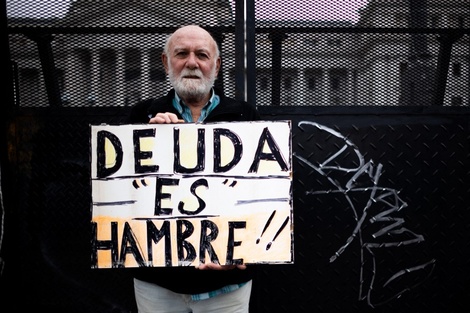 DEUDA
"ES"
HAMBRE!!